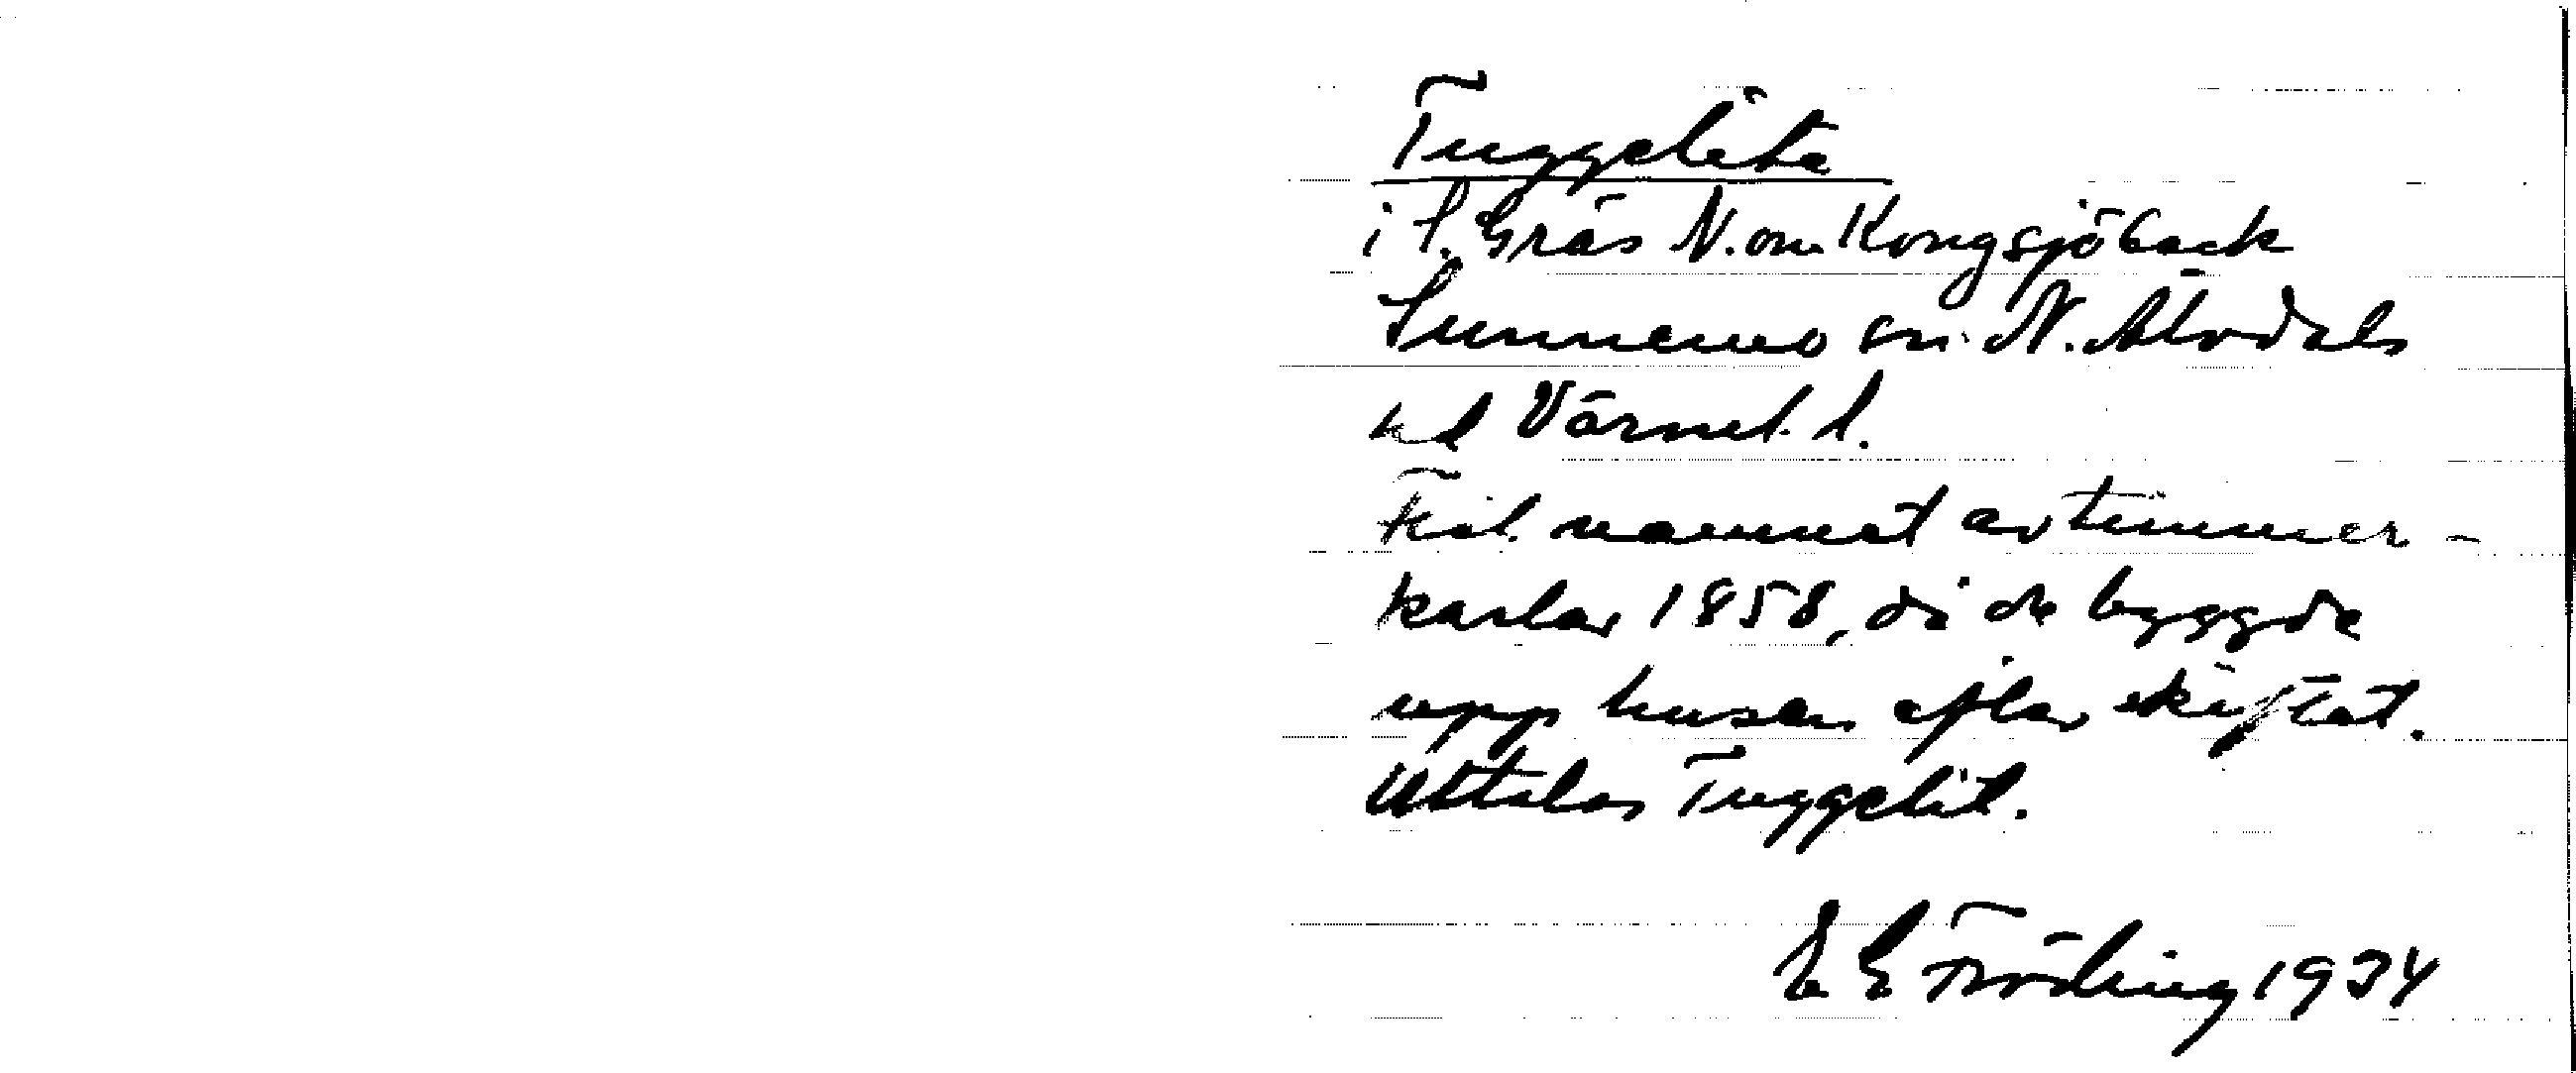 Tuggelita
i S. Gräs N. om Kongsjöback
Sunnemo sn. N. Älvdals
hd Värml. l.
Fick namnet av timmer-
karlar 1858, då de byggde
upp husen efter skiftet.
Uttalas Tuggelit.
E E Fröding 1934